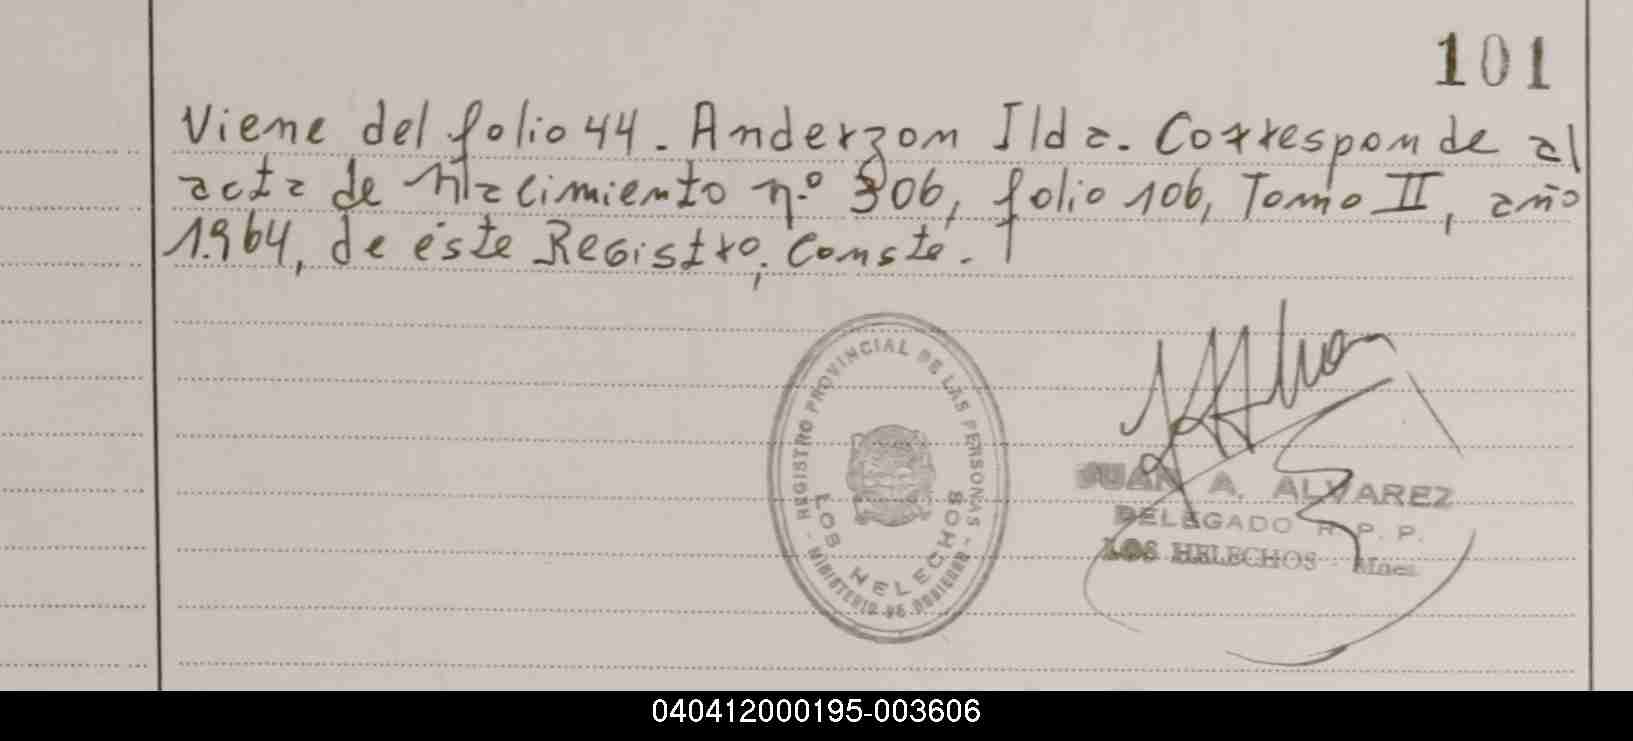 101
Viene del folio 44. Anderzon Ilda. Corresponde al
acta de Nacimiento nº 306, folio 106, Tomo II, año
1.964, de éste Registro, Conste.
REGISTRO PROVINCIAL DE LAS PERSONAS
- MINISTERIO DE GOBIERNO -
LOS HELECHOS
JUAN A. ALVAREZ
DELEGADO R. P. P.
LOS HELECHOS - Mnes.
040412000195-003606